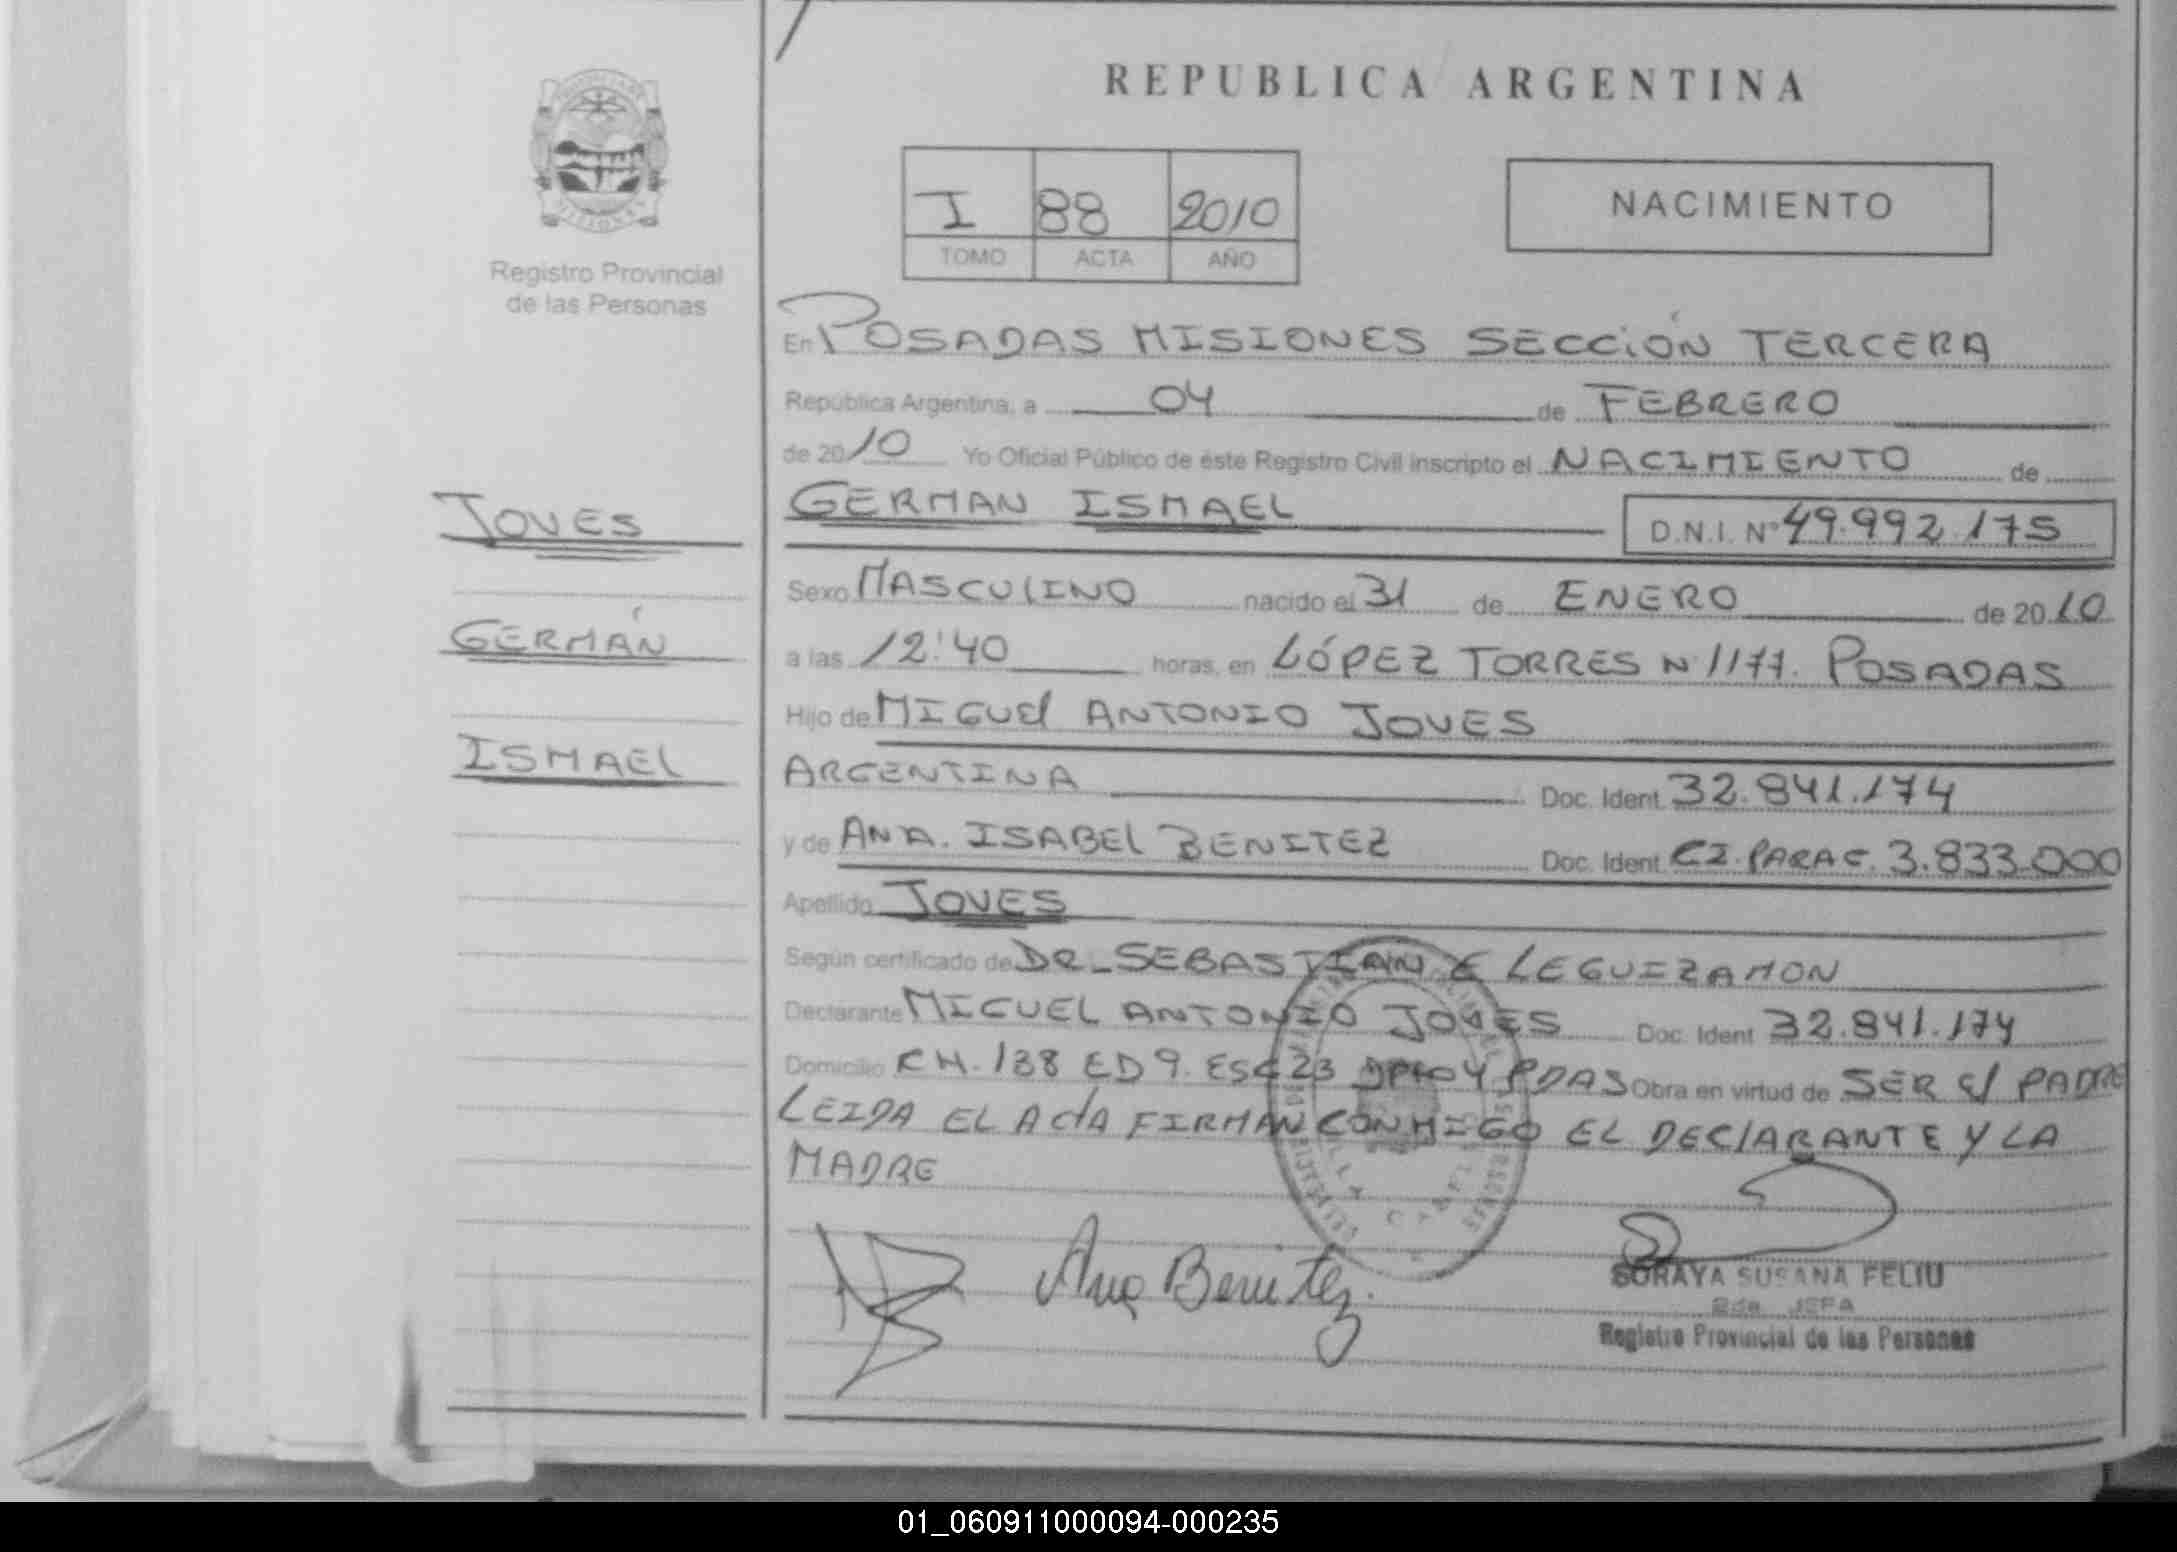 REPUBLICA ARGENTINA
I 88 2010
TOMO ACTA AÑO
NACIMIENTO
Registro Provincial
de las Personas
En POSADAS MISIONES SECCIÓN TERCERA
República Argentina, a 04 de FEBRERO
de 2010 Yo Oficial Público de éste Registro Civil inscripto el NACIMIENTO de
GERMAN ISMAEL D.N.I. Nº 49.992.175
JOVES
GERMÁN
ISMAEL
Sexo MASCULINO nacido el 31 de ENERO de 2010
a las 12:40 horas, en LÓPEZ TORRES N 1177. POSADAS
Hijo de MIGUEL ANTONIO JOVES
ARGENTINA Doc. Ident. 32.841.174
y de ANA. ISABEL BENITEZ Doc. Ident. CI. PARAG. 3.833.000
Apellido JOVES
Según certificado de DR_SEBASTIAN E LEGUIZAMON
Declarante MIGUEL ANTONIO JOVES Doc. Ident 32.841.174
Domicilio CH. 138 ED 9. ESC 23 DPTO 4 PDAS Obra en virtud de SER EL PADRE
LEIDA EL ACTA FIRMAN CONMIGO EL DECLARANTE Y LA
MADRE
Ana Benitez.
SORAYA SUSANA FELIU
2da. JEFA
Registro Provincial de las Personas
01_060911000094-000235